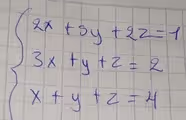 2x + 3y + 2z = 1
3x + y + z = 2
x + y + z = 4